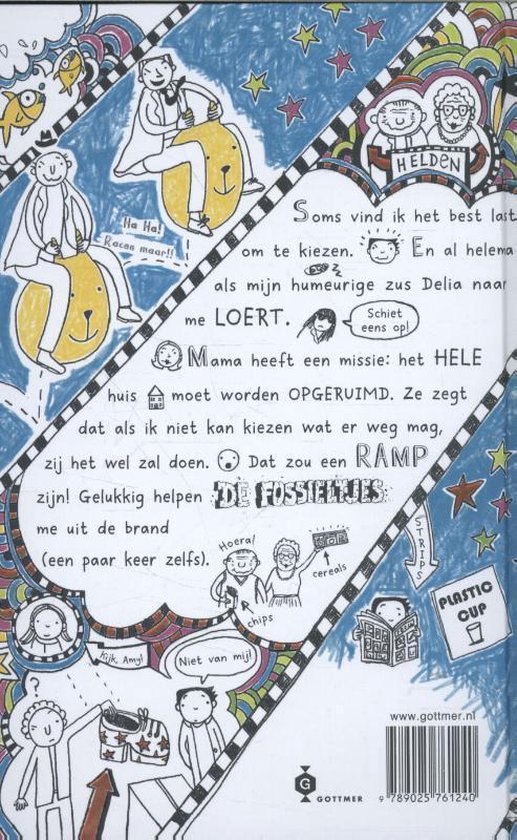 HELDEN
Ha Ha!
Racen maar!!
Soms vind ik het best last
om te kiezen. En al helema
als mijn humeurige zus Delia naar
me LOERT.
Schiet
eens op!
Mama heeft een missie: het HELE
huis moet worden OPGERUIMD. Ze zegt
dat als ik niet kan kiezen wat er weg mag,
zij het wel zal doen. Dat zou een RAMP
zijn! Gelukkig helpen DE FOSSIELTJES
me uit de brand
(een paar keer zelfs).
Hoera!
cereals
chips
STRIPS
PLASTIC
CUP
Kijk, Amy!
Niet van mij!
?
www.gottmer.nl
G
GOTTMER
9 789025 761240